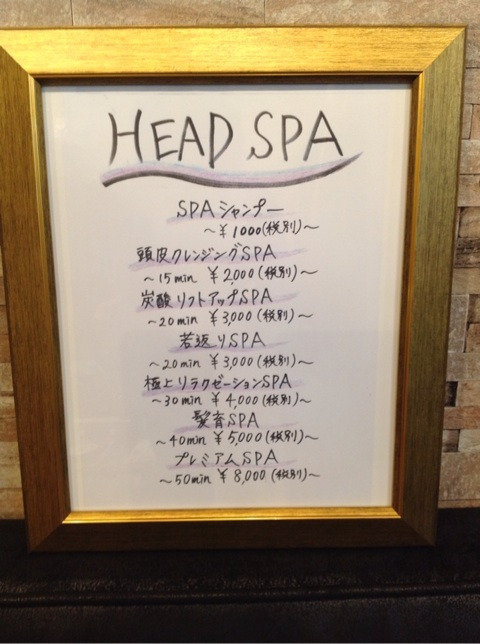 HEAD SPA
SPA シャンプー
～¥1000(税別)～
頭皮クレンジングSPA
～15min ¥2,000(税別)～
炭酸リフトアップSPA
～20min ¥3,000(税別)～
若返りSPA
～20min ¥3,000(税別)～
極上リラクゼーションSPA
～30min ¥4,000(税別)～
髪育SPA
～40min ¥5,000(税別)～
プレミアムSPA
～50min ¥8,000(税別)～